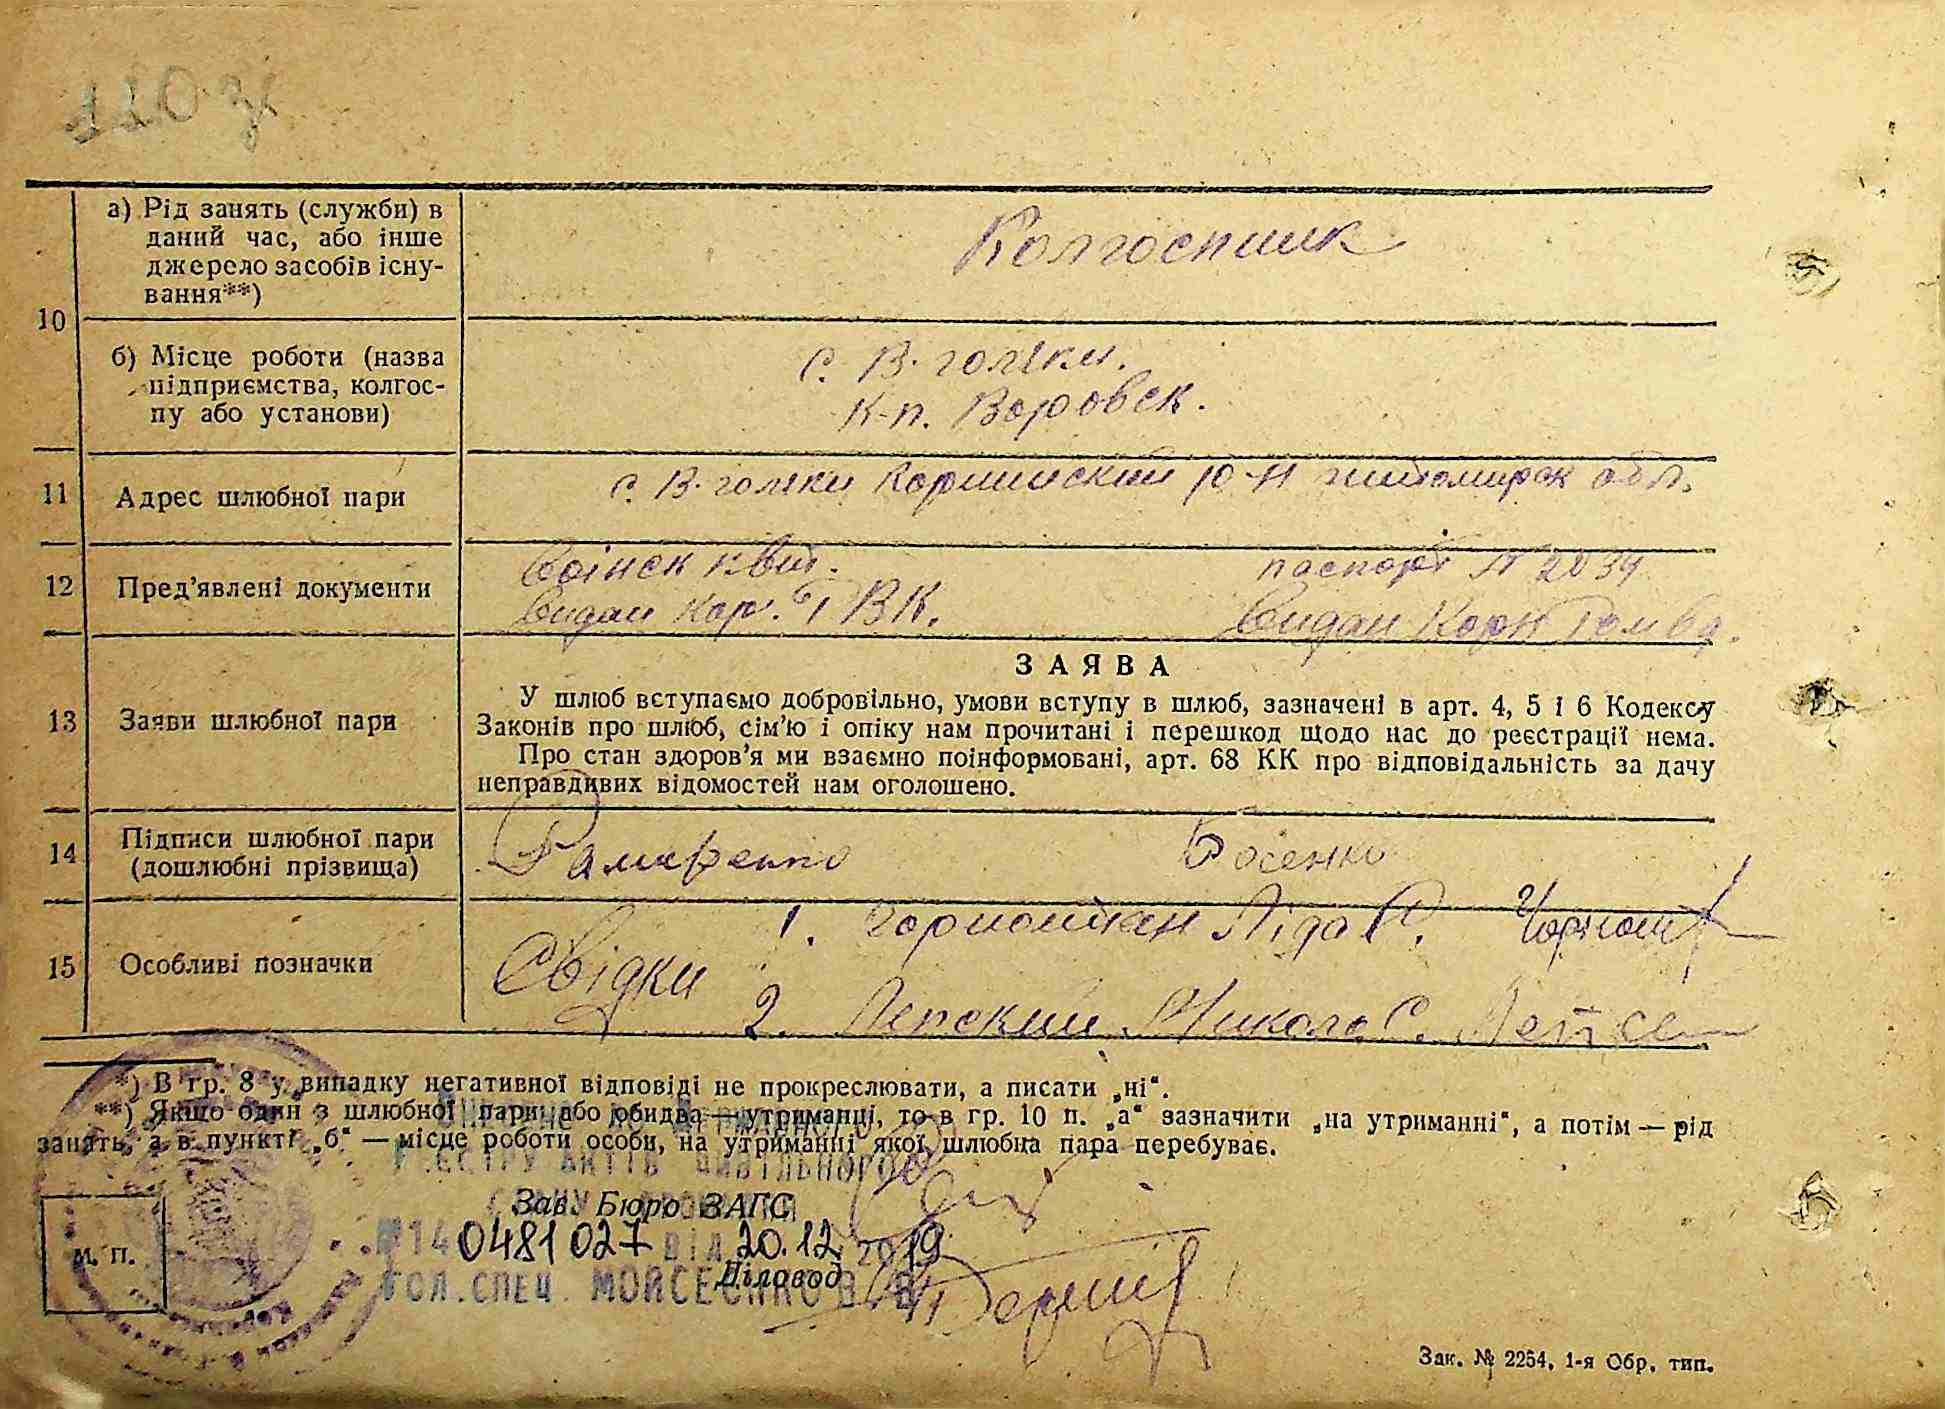 10
а) Рід занять (служби) в
даний час, або інше
джерело засобів існу-
вання**)
Колгоспник
б) Місце роботи (назва
підприємства, колгос-
пу або установи)
с. В. голяки.
к-п. Воровск.
11
Адрес шлюбної пари
с. В. голяки Корнинский р-н житомирск обл.
12
Пред'явлені документи
Воінск квит. паспорт № 2034
видан Кор. РВК. видан Корн
13
Заяви шлюбної пари
ЗАЯВА
У шлюб вступаємо добровільно, умови вступу в шлюб, зазначені в арт. 4, 5 і 6 Кодексу
Законів про шлюб, сім'ю і опіку нам прочитані і перешкод щодо нас до реєстрації нема.
Про стан здоров'я ми взаємно поінформовані, арт. 68 КК про відповідальність за дачу
неправдивих відомостей нам оголошено.
14
Підписи шлюбної пари
(дошлюбні прізвища)
Босенко
15
Особливі позначки
Свідки
1. Ліда
2. Лепский Микола С.
*) В гр. 8 у випадку негативної відповіді не прокреслювати, а писати „ні“.
**) Якщо один з шлюбної пари або обидва — утриманці, то в гр. 10 п. „а“ зазначити „на утриманні“, а потім — рід
занять, а в пункті „б“ — місце роботи особи, на утриманні якої шлюбна пара перебуває.
РЕЄСТРУ АКТІВ ЦИВІЛЬНОГО
Зав. Бюро ЗАГС
М. П.
0481027 ВІД 20.12 2019
Діловод
ГОЛ.СПЕЦ. МОЙСЕЄНКО
Зак. № 2254, 1-я Обр. тип.